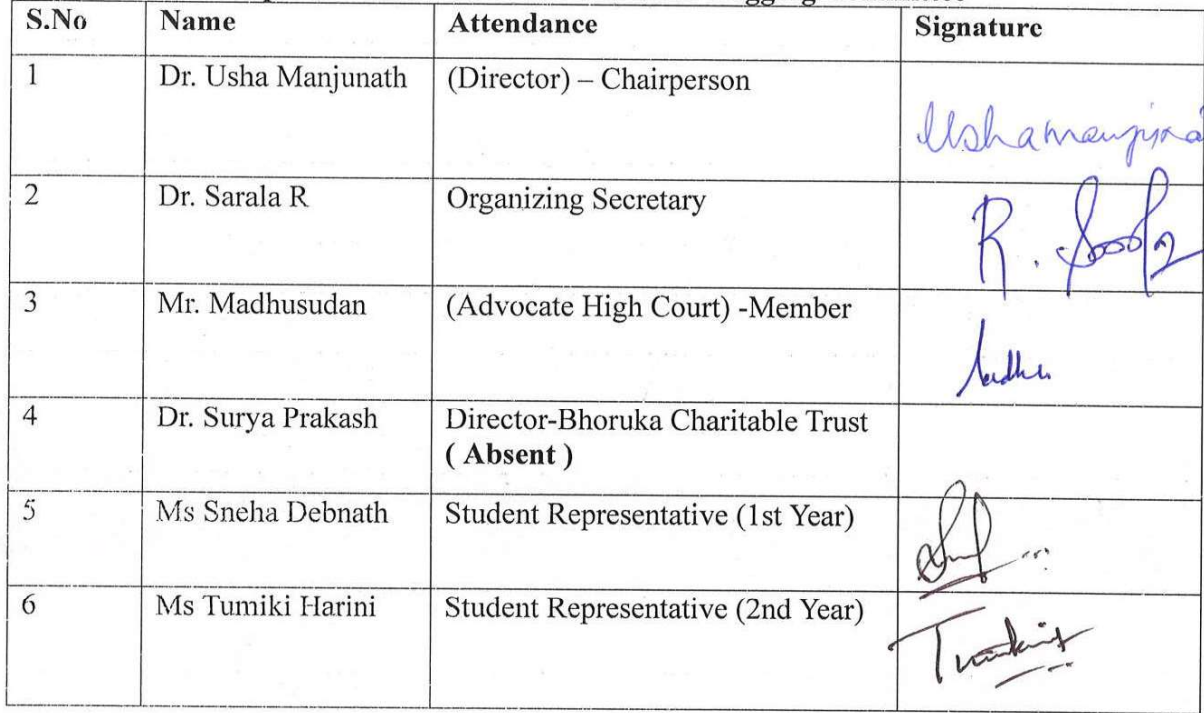 S.No Name Attendance Signature
1 Dr. Usha Manjunath (Director) – Chairperson
2 Dr. Sarala R Organizing Secretary R.
3 Mr. Madhusudan (Advocate High Court) -Member
4 Dr. Surya Prakash Director-Bhoruka Charitable Trust
( Absent )
5 Ms Sneha Debnath Student Representative (1st Year)
6 Ms Tumiki Harini Student Representative (2nd Year)